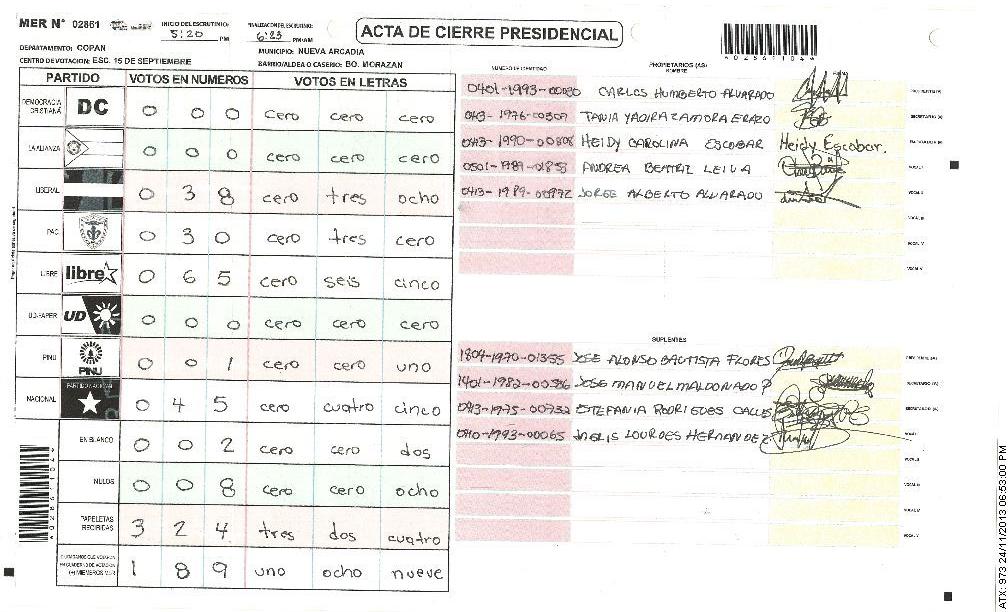 MER N° 02861
INICIO DEL ESCRUTINIO: 5:20 PM
FINALIZACION DEL ESCRUTINIO: 6:23 PM/AM
ACTA DE CIERRE PRESIDENCIAL
DEPARTAMENTO: COPAN
MUNICIPIO: NUEVA ARCADIA
CENTRO DE VOTACION: ESC. 15 DE SEPTIEMBRE
BARRIO/ALDEA O CASERIO: BO. MORAZAN
PARTIDO VOTOS EN NUMEROS VOTOS EN LETRAS
DEMOCRACIA CRISTIANA DC 0 0 0 cero cero cero
LA ALIANZA 0 0 0 cero cero cero
LIBERAL 0 3 8 cero tres ocho
PAC 0 3 0 cero tres cero
LIBRE libre 0 6 5 cero seis cinco
UD-FAPER UD 0 0 0 cero cero cero
PINU PINU 0 0 1 cero cero uno
NACIONAL PARTIDO NACIONAL 0 4 5 cero cuatro cinco
EN BLANCO 0 0 2 cero cero dos
NULOS 0 0 8 cero cero ocho
PAPELETAS RECIBIDAS 3 2 4 tres dos cuatro
1 8 9 uno ocho nueve
NUMERO DE IDENTIDAD PROPIETARIOS (AS) NOMBRE
CARLOS HUMBERTO ALVARADO PRESIDENTE (A)
TANIA YADIRA ZAMORA ERAZO SECRETARIO (A)
0413-1990-00808 HEIDY CAROLINA ESCOBAR Heidy Escobar.
0501-1989-01853 ANDREA BEATRIZ LEIVA VOCAL I
0413-1989-00972 JORGE ALBERTO ALVARADO VOCAL II
VOCAL III
VOCAL IV
VOCAL V
SUPLENTES
1804-1970-01355 JOSE ALONSO BAUTISTA FLORES PRESIDENTE (A)
JOSE MANUEL MALDONADO P SECRETARIO (A)
0413-1975-00732 ESTEFANIA
0410-1993-00065 LOURDES HERNANDEZ VOCAL I
VOCAL II
VOCAL III
VOCAL IV
VOCAL V
A028611044
ATX: 973 24/11/2013 06:53:00 PM